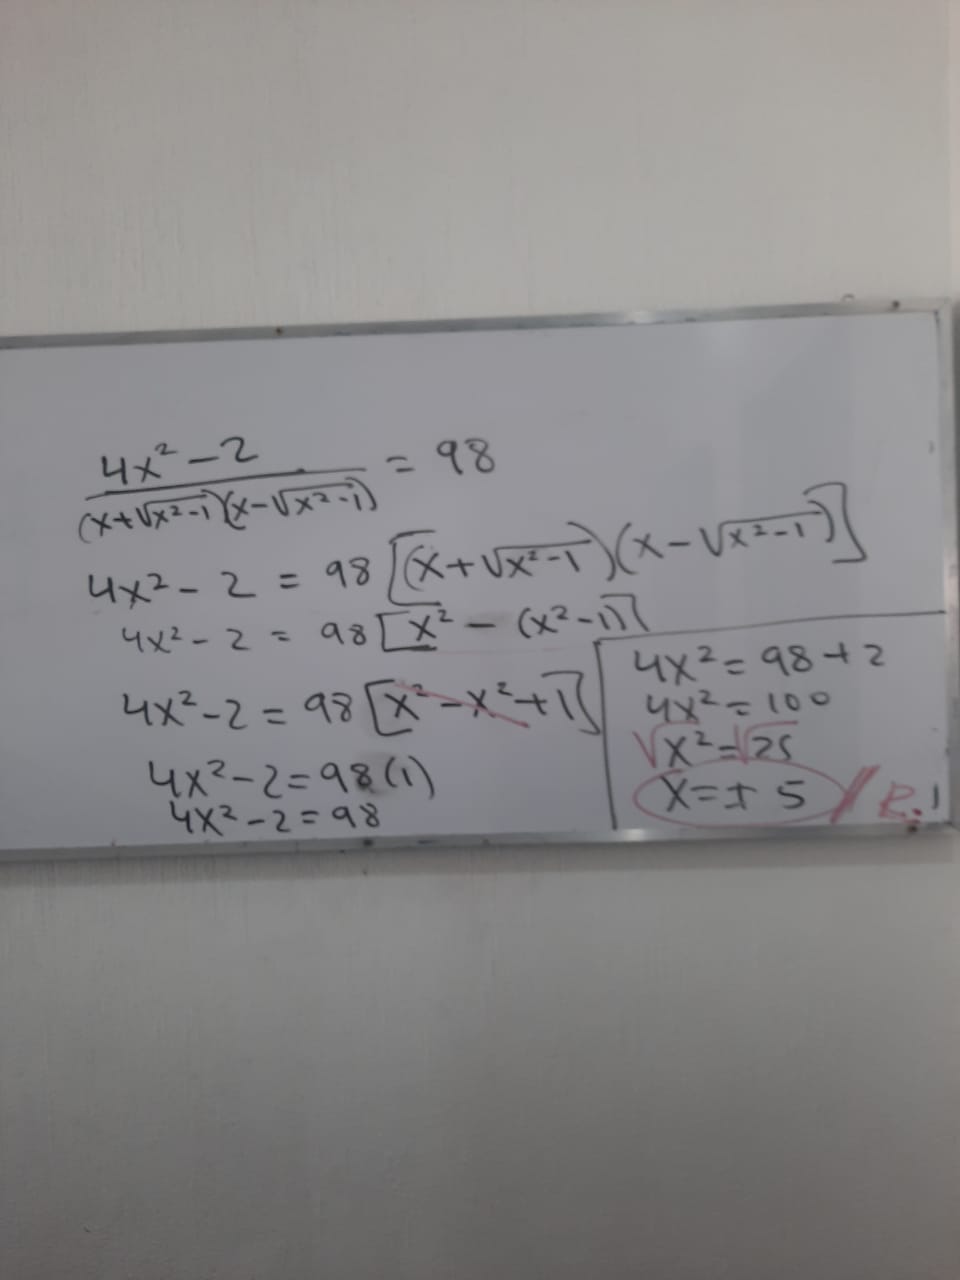 4x² - 2 / (x+√x²-1)(x-√x²-1) = 98
4x² - 2 = 98 [(x+√x²-1)(x-√x²-1)]
4x² - 2 = 98 [x² - (x²-1)]
4x² - 2 = 98 [x² - x² + 1]
4x² - 2 = 98(1)
4x² - 2 = 98
4x² = 98 + 2
4x² = 100
√x² = √25
x = ± 5 // R.